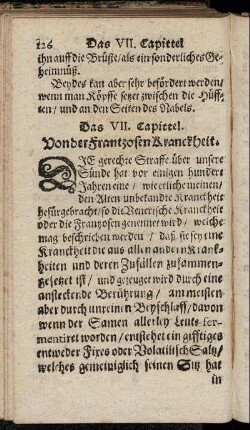 126 Das VII. Capittel
ihn auff die Brüste/als ein sonderliches Ge-
heimnüß.
Beydes kan aber sehr befördert werden/
wenn man Köpffe setzet zwischen die Hüff-
ten/ und an den Seiten des Nabels.
Das VII. Capittel.
Von der Frantzosen Kranckheit.
DIE gerechte Straffe über unsere
Sünde hat vor einigen hundert
Jahren eine/ wie etliche meinen/
den Alten unbekandte Kranckheit
hefürgebracht/ so die Venerische Kranckheit
oder die Franzosen genennet wird/ welche
mag beschrieben werden/ daß sie sey eine
Kranckheit die aus allen andern Kranck-
heiten und deren Zufällen zusammen-
gesetzet ist/ und gezeuget wird durch eine
ansteckende Berührung/ am meisten
aber durch unreinen Beyschlaff/davon
wenn der Samen allerley Leute fer-
mentiret worden/ entstehet ein gifftiges
entweder Fixes oder Volatilisch Saltz/
welches gemeiniglich seinen Sitz hat
in